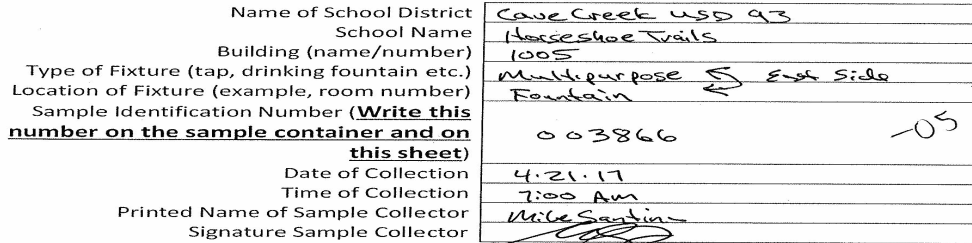 Name of School District Cave Creek USD 93
School Name Horseshoe Trails
Building (name/number) 1005
Type of Fixture (tap, drinking fountain etc.) Multipurpose East Side
Location of Fixture (example, room number) Fountain
Sample Identification Number (Write this
number on the sample container and on 003866 -05
this sheet)
Date of Collection 4.21.17
Time of Collection 7:00 Am
Printed Name of Sample Collector Mike
Signature Sample Collector